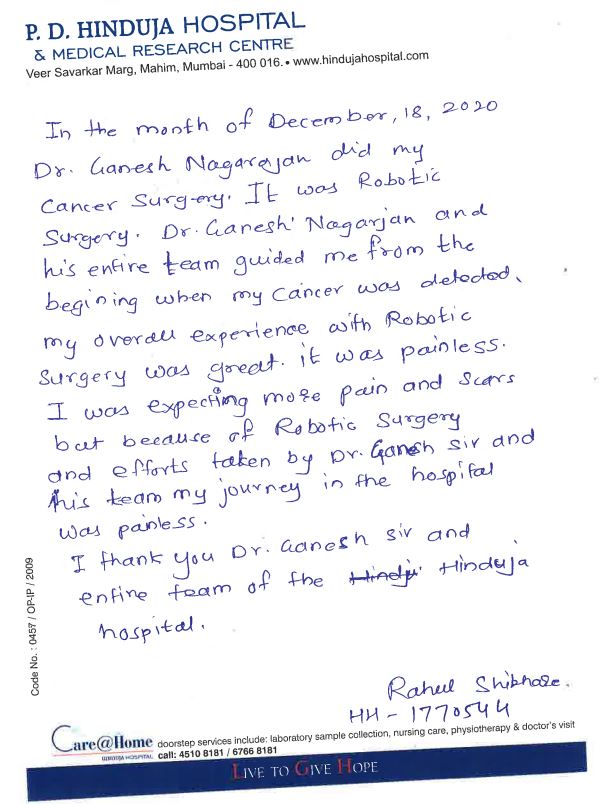 P. D. HINDUJA HOSPITAL
& MEDICAL RESEARCH CENTRE
Veer Savarkar Marg, Mahim, Mumbai - 400 016. • www.hindujahospital.com
In the month of December, 18, 2020
Dr. Ganesh Nagarajan did my
Cancer Surgery. It was Robotic
Surgery. Dr. Ganesh Nagarjan and
his entire team guided me from the
begining when my Cancer was detected.
my overall experience with Robotic
Surgery was great. it was painless.
I was expecting more pain and scars
but because of Robotic Surgery
and efforts taken by Dr. Ganesh sir and
his team my journey in the hospital
was painless.
I thank you Dr. Ganesh sir and
entire team of the Hinduja
hospital.
Rahul
HH - 1770544
Code No. : 0457 / OP-IP / 2009
Care@Home doorstep services include: laboratory sample collection, nursing care, physiotherapy & doctor's visit
HINDUJA HOSPITAL call: 4510 8181 / 6766 8181
LIVE TO GIVE HOPE